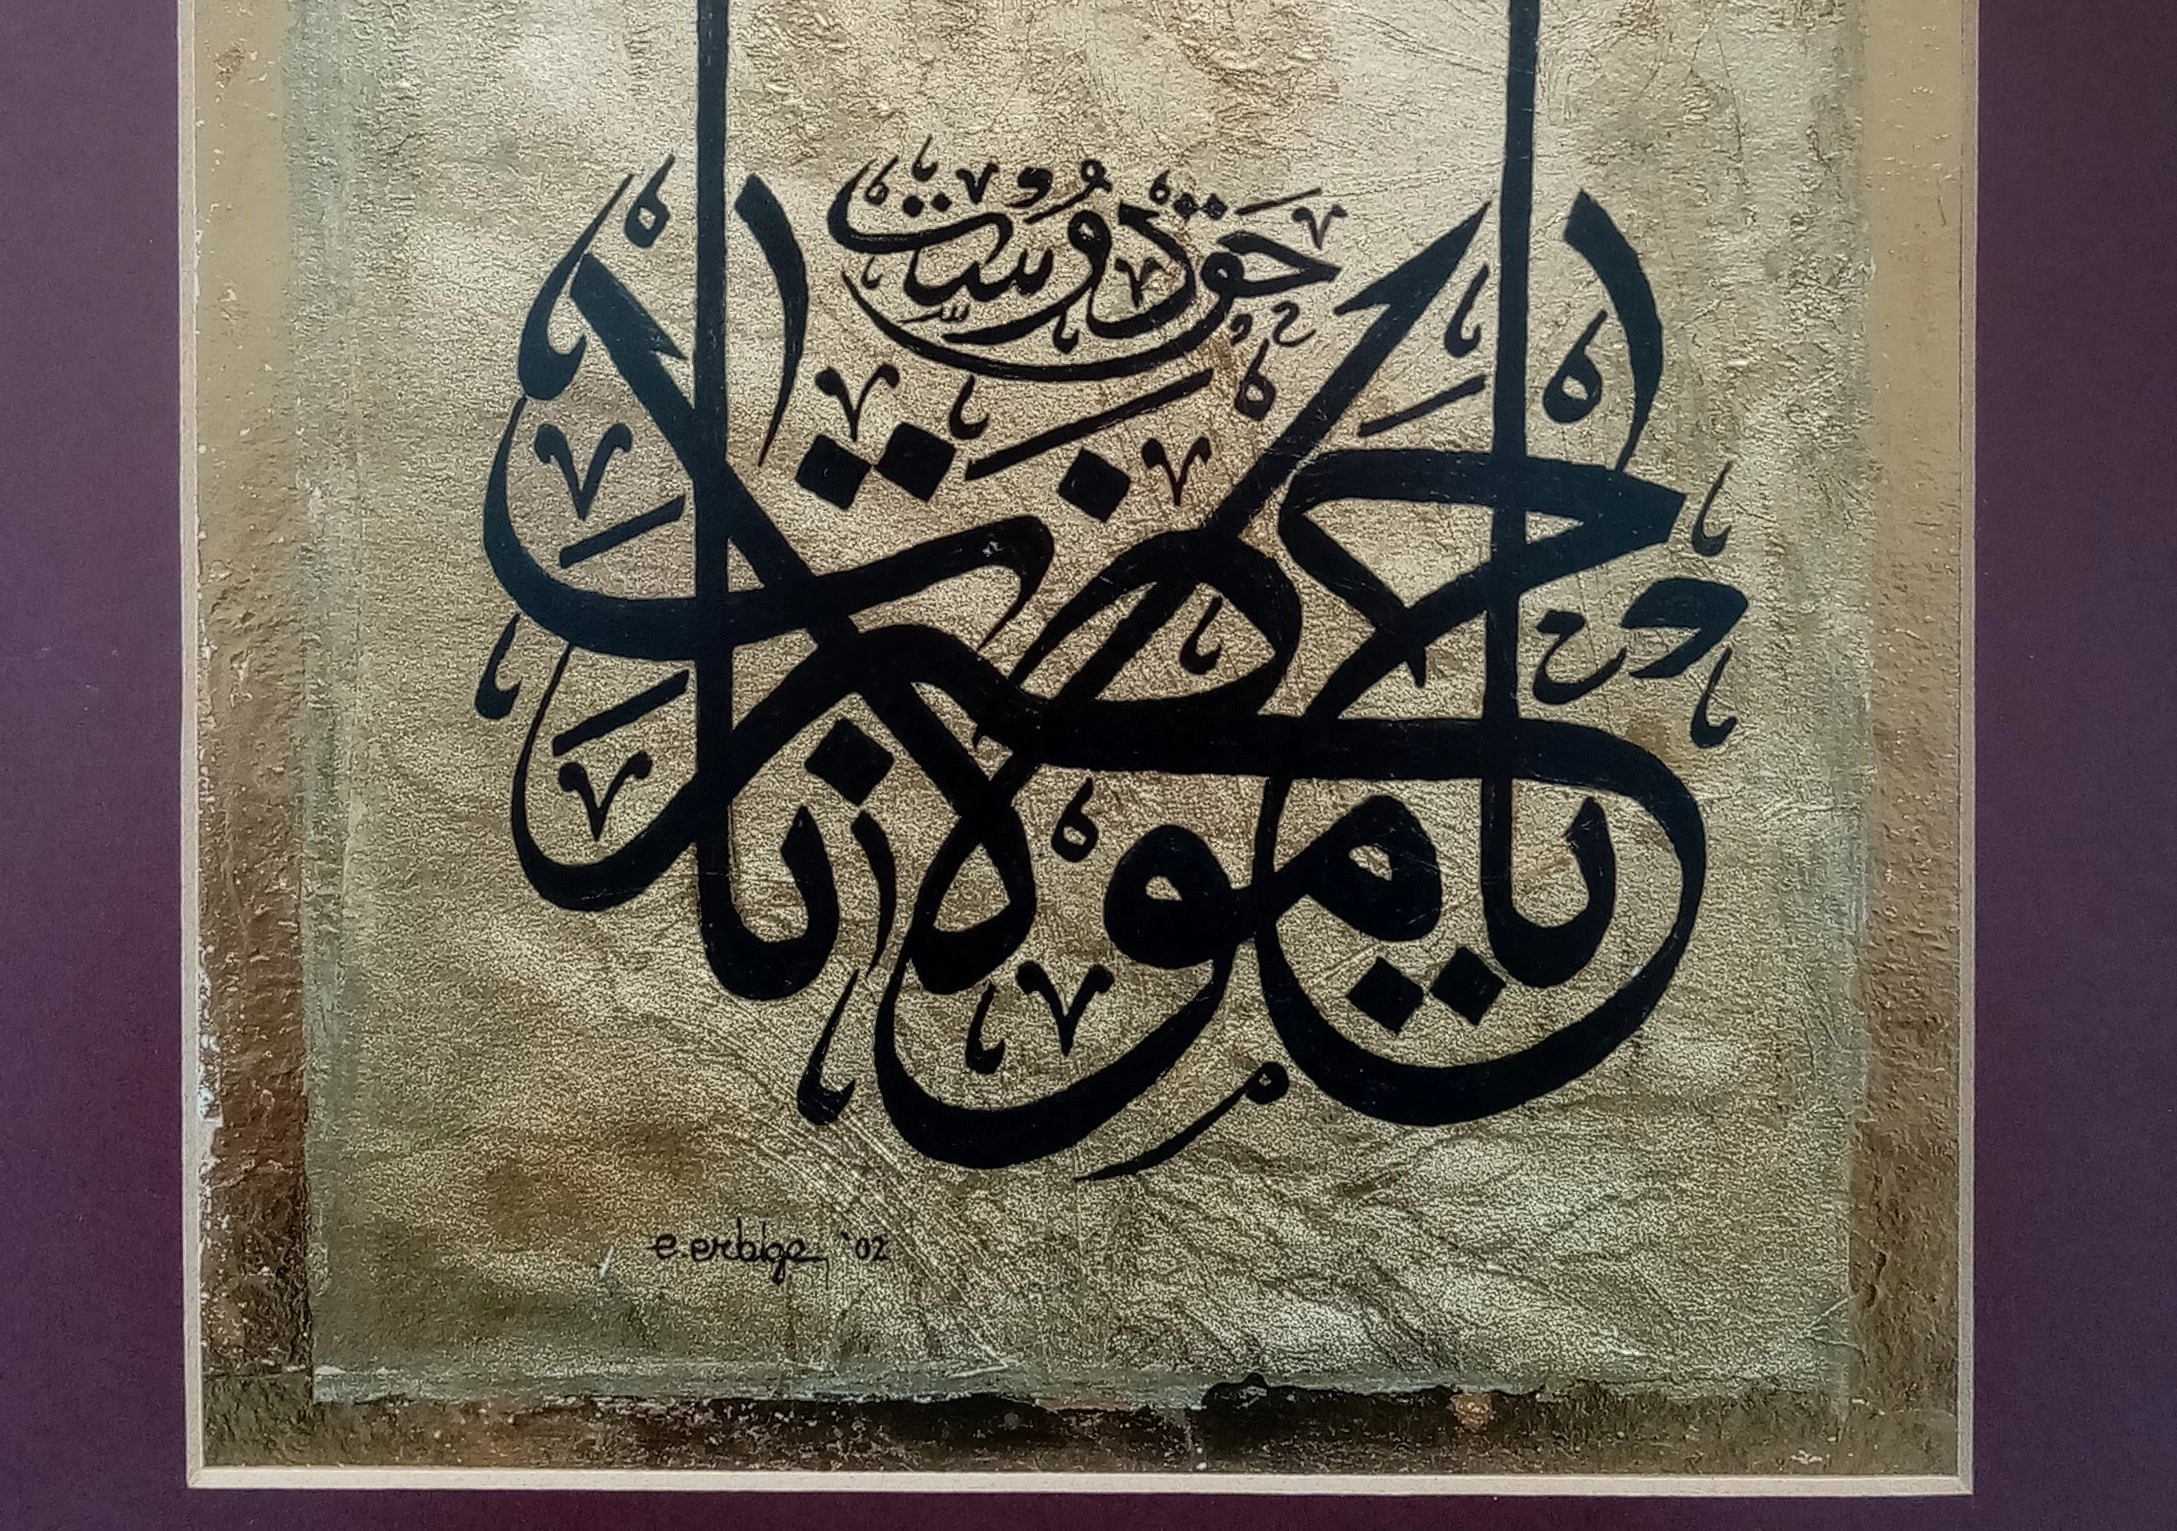 يا حضرت مولانا
حق دوست
e. erbige '02